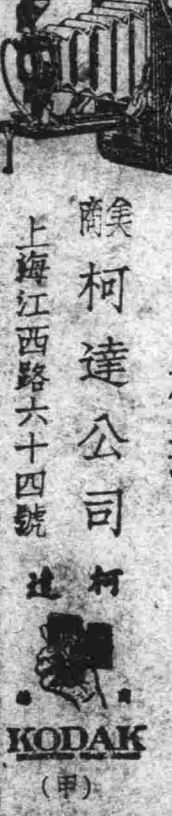 美商
柯達公司
上海江西路六十四號
柯達
KODAK
(甲)